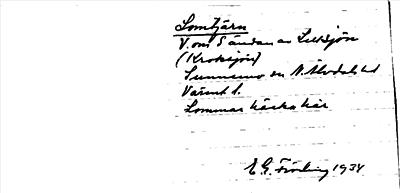 Lomtjärn
V. om S ändan av Lillsjön
(Kroksjön)
Sunnemo sn N. Älvdals hd
Värml.
Lommar häcka här
E. G. Fröling 1934